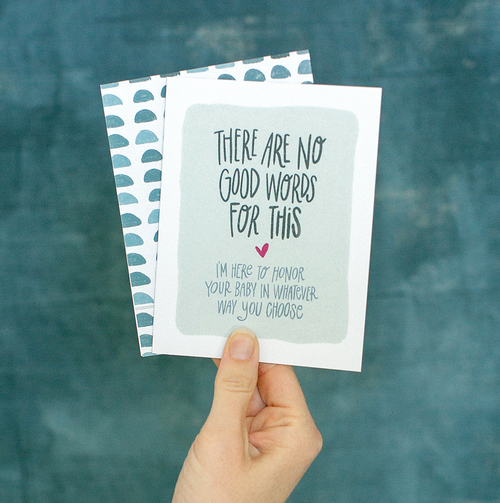 THERE ARE NO
GOOD WORDS
FOR THIS
I'M HERE TO HONOR
YOUR BABY IN WHATEVER
WAY YOU CHOOSE